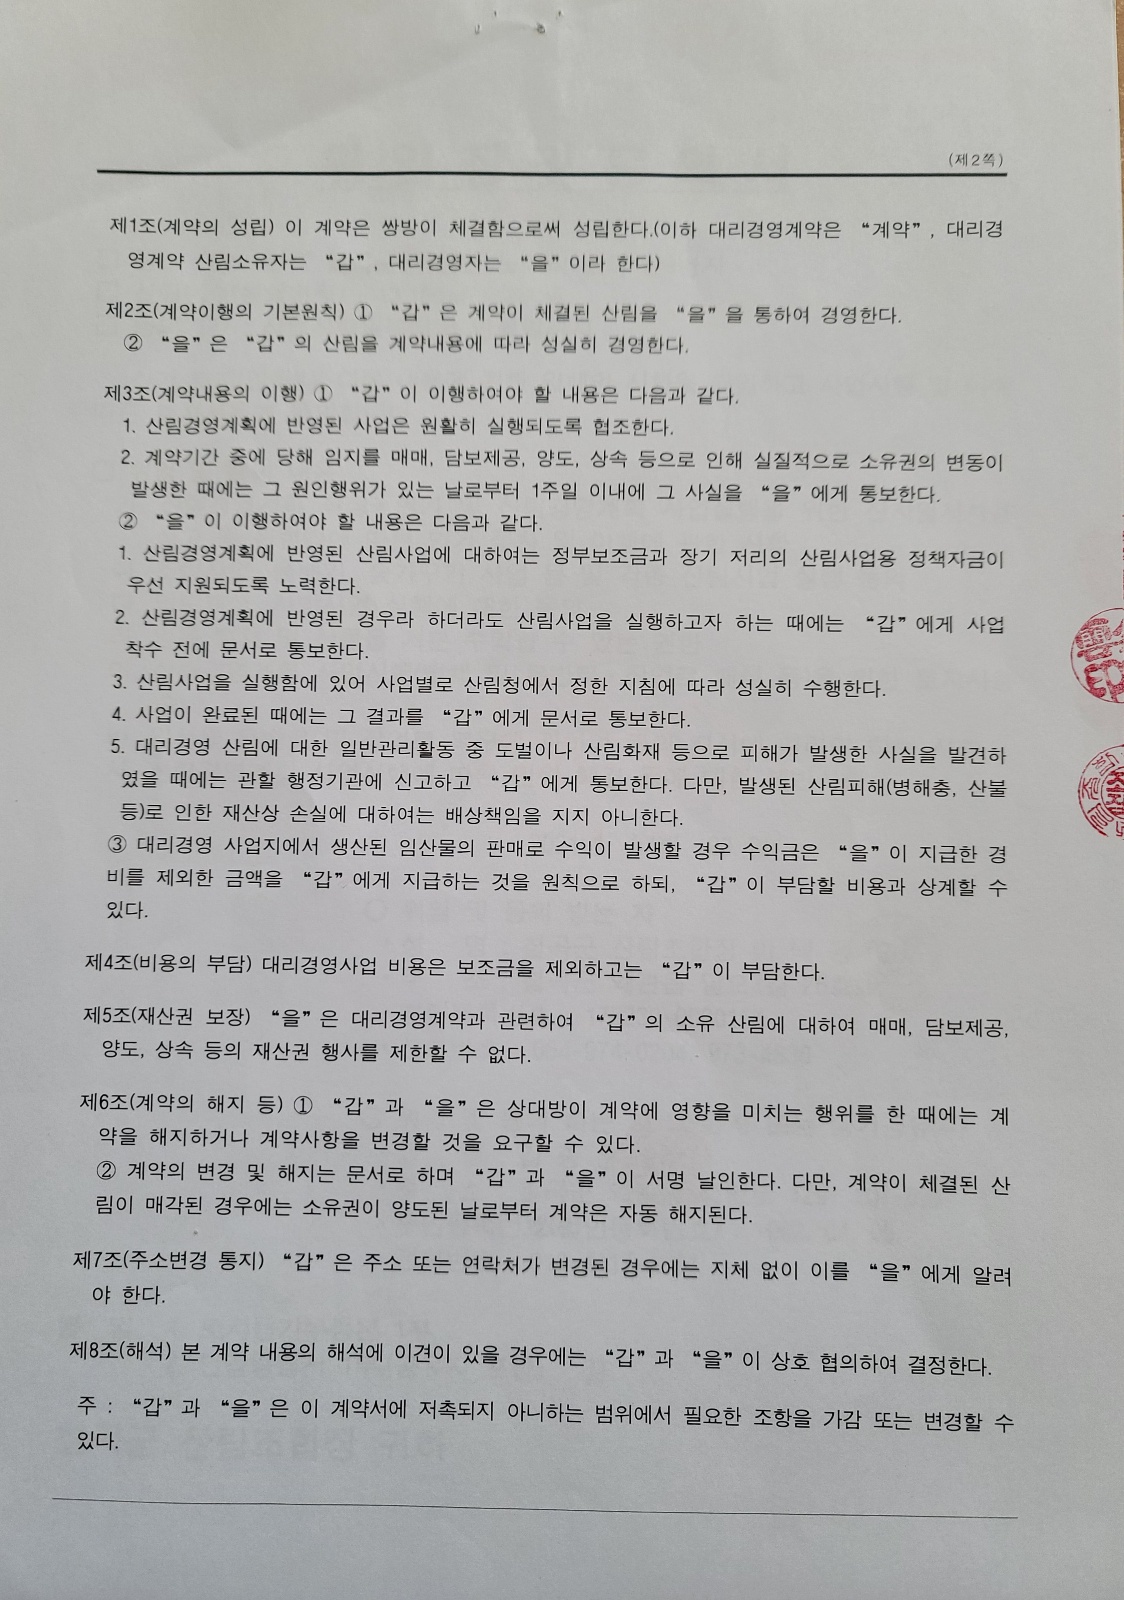 (제2쪽)
제1조(계약의 성립) 이 계약은 쌍방이 체결함으로써 성립한다.(이하 대리경영계약은 “계약”, 대리경
영계약 산림소유자는 “갑”, 대리경영자는 “을”이라 한다)
제2조(계약이행의 기본원칙) ① “갑”은 계약이 체결된 산림을 “을”을 통하여 경영한다.
② “을”은 “갑”의 산림을 계약내용에 따라 성실히 경영한다.
제3조(계약내용의 이행) ① “갑”이 이행하여야 할 내용은 다음과 같다.
1. 산림경영계획에 반영된 사업은 원활히 실행되도록 협조한다.
2. 계약기간 중에 당해 임지를 매매, 담보제공, 양도, 상속 등으로 인해 실질적으로 소유권의 변동이
발생한 때에는 그 원인행위가 있는 날로부터 1주일 이내에 그 사실을 “을”에게 통보한다.
② “을”이 이행하여야 할 내용은 다음과 같다.
1. 산림경영계획에 반영된 산림사업에 대하여는 정부보조금과 장기 저리의 산림사업용 정책자금이
우선 지원되도록 노력한다.
2. 산림경영계획에 반영된 경우라 하더라도 산림사업을 실행하고자 하는 때에는 “갑”에게 사업
착수 전에 문서로 통보한다.
3. 산림사업을 실행함에 있어 사업별로 산림청에서 정한 지침에 따라 성실히 수행한다.
4. 사업이 완료된 때에는 그 결과를 “갑”에게 문서로 통보한다.
5. 대리경영 산림에 대한 일반관리활동 중 도벌이나 산림화재 등으로 피해가 발생한 사실을 발견하
였을 때에는 관할 행정기관에 신고하고 “갑”에게 통보한다. 다만, 발생된 산림피해(병해충, 산불
등)로 인한 재산상 손실에 대하여는 배상책임을 지지 아니한다.
③ 대리경영 사업지에서 생산된 임산물의 판매로 수익이 발생할 경우 수익금은 “을”이 지급한 경
비를 제외한 금액을 “갑”에게 지급하는 것을 원칙으로 하되, “갑”이 부담할 비용과 상계할 수
있다.
제4조(비용의 부담) 대리경영사업 비용은 보조금을 제외하고는 “갑”이 부담한다.
제5조(재산권 보장) “을”은 대리경영계약과 관련하여 “갑”의 소유 산림에 대하여 매매, 담보제공,
양도, 상속 등의 재산권 행사를 제한할 수 없다.
제6조(계약의 해지 등) ① “갑”과 “을”은 상대방이 계약에 영향을 미치는 행위를 한 때에는 계
약을 해지하거나 계약사항을 변경할 것을 요구할 수 있다.
② 계약의 변경 및 해지는 문서로 하며 “갑”과 “을”이 서명 날인한다. 다만, 계약이 체결된 산
림이 매각된 경우에는 소유권이 양도된 날로부터 계약은 자동 해지된다.
제7조(주소변경 통지) “갑”은 주소 또는 연락처가 변경된 경우에는 지체 없이 이를 “을”에게 알려
야 한다.
제8조(해석) 본 계약 내용의 해석에 이견이 있을 경우에는 “갑”과 “을”이 상호 협의하여 결정한다.
주 : “갑”과 “을”은 이 계약서에 저촉되지 아니하는 범위에서 필요한 조항을 가감 또는 변경할 수
있다.